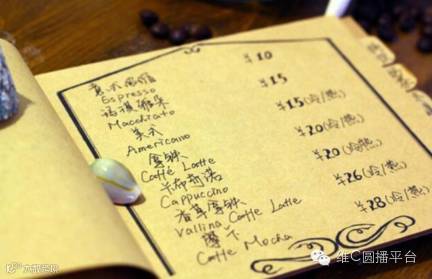 意式浓缩 ¥10
Espresso
玛琪雅朵 ¥15
Macchiato
美式 ¥15(冷/热)
Americano
拿铁 ¥20(冷/热)
Caffé Latte
卡布奇诺 ¥20(冷/热)
Cappuccino
香草拿铁 ¥26(冷/热)
Vallina Caffe Latte
摩卡 ¥28(冷/热)
Caffe Mocha
维C圆播平台